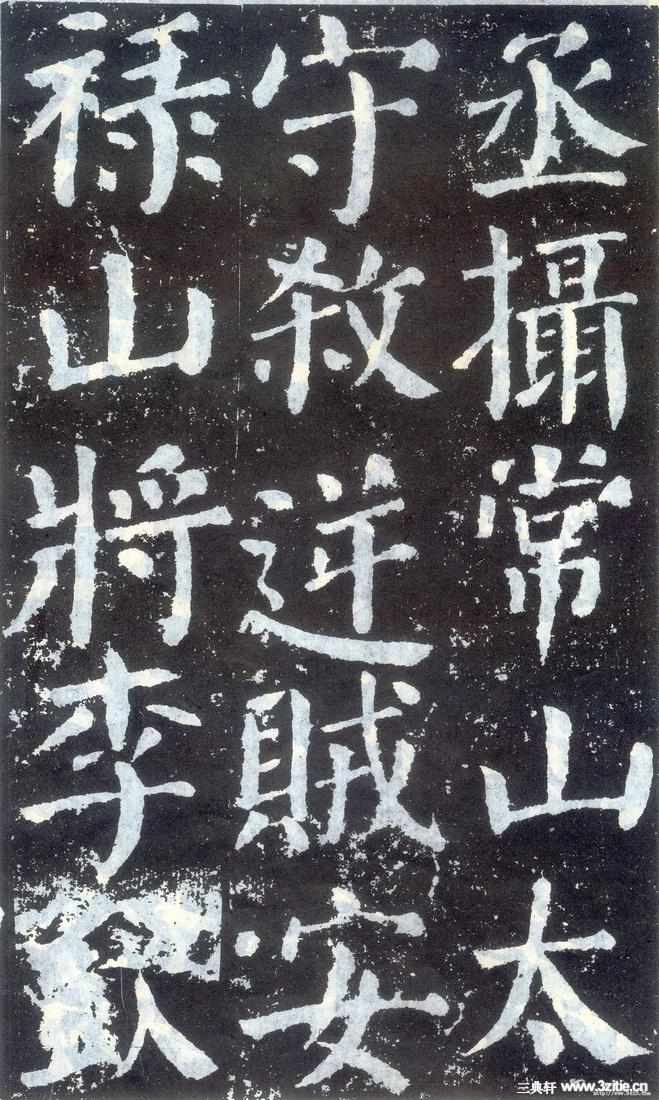 丞攝常山太
守殺逆賊安
禄山將李欽
三典轩 www.3zitie.cn